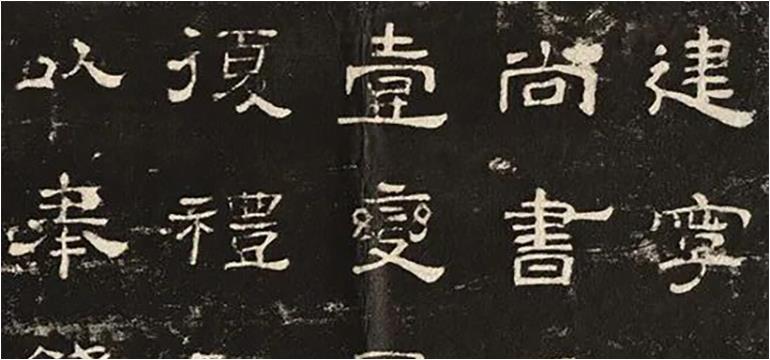 建寧
尚書
壹變
復禮
以奉